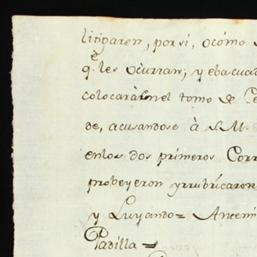 litigaren, por si, ocómo
q.e les ocurran; y evacuad
colocará en el tomo de
de, acusandose à S.M.
en los dos primeros Corr
probeyeron yrrubricaron
y Luyando= Antemi
Padilla=